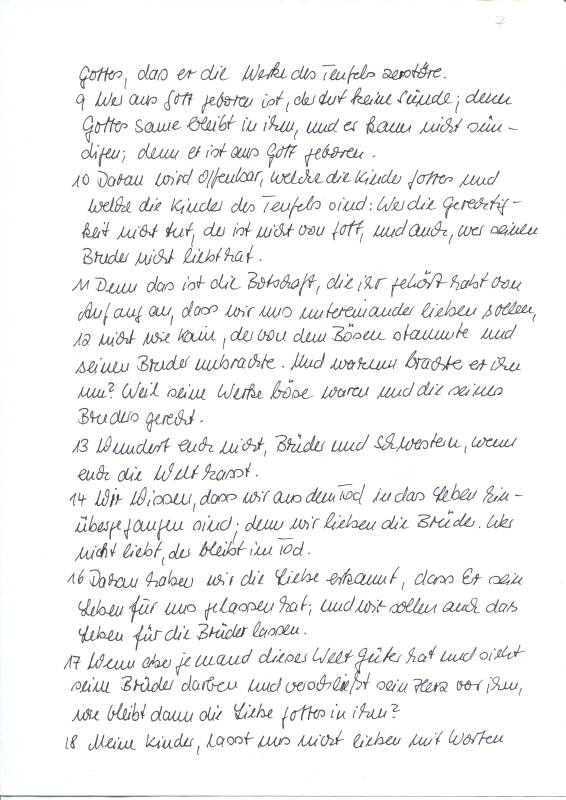 7
Gottes, das er die Werke des Teufels zerstöre.
9 Wer aus Gott geboren ist, der tut keine Sünde; denn
Gottes Same bleibt in ihm, und er kann nicht sün-
digen; denn er ist aus Gott geboren.
10 Daran wird offenbar, welche die Kinder Gottes und
welche die Kinder des Teufels sind: Wer die Gerechtig-
keit nicht tut, der ist nicht von Gott, und auch, wer seinen
Bruder nicht liebt hat.
11 Denn das ist die Botschaft, die ihr gehört habt von
Anfang an, dass wir uns untereinander lieben sollen,
12 nicht wie Kain, der von dem Bösen stammte und
seinen Bruder umbrachte. Und warum brachte er ihn
um? Weil seine Werke böse waren und die seines
Bruders gerecht.
13 Wundert euch nicht, Brüder und Schwestern, wenn
euch die Welt hasst.
14 Wir wissen, dass wir aus dem Tod in das Leben hin-
übergegangen sind; denn wir lieben die Brüder. Wer
nicht liebt, der bleibt im Tod.
16 Daran haben wir die Liebe erkannt, dass Er sein
Leben für uns gelassen hat; und wir sollen auch das
Leben für die Brüder lassen.
17 Wenn aber jemand dieser Welt Güter hat und sieht
seine Brüder darben und verschließt sein Herz vor ihm,
wie bleibt dann die Liebe Gottes in ihm?
18 Meine Kinder, lasst uns nicht lieben mit Worten